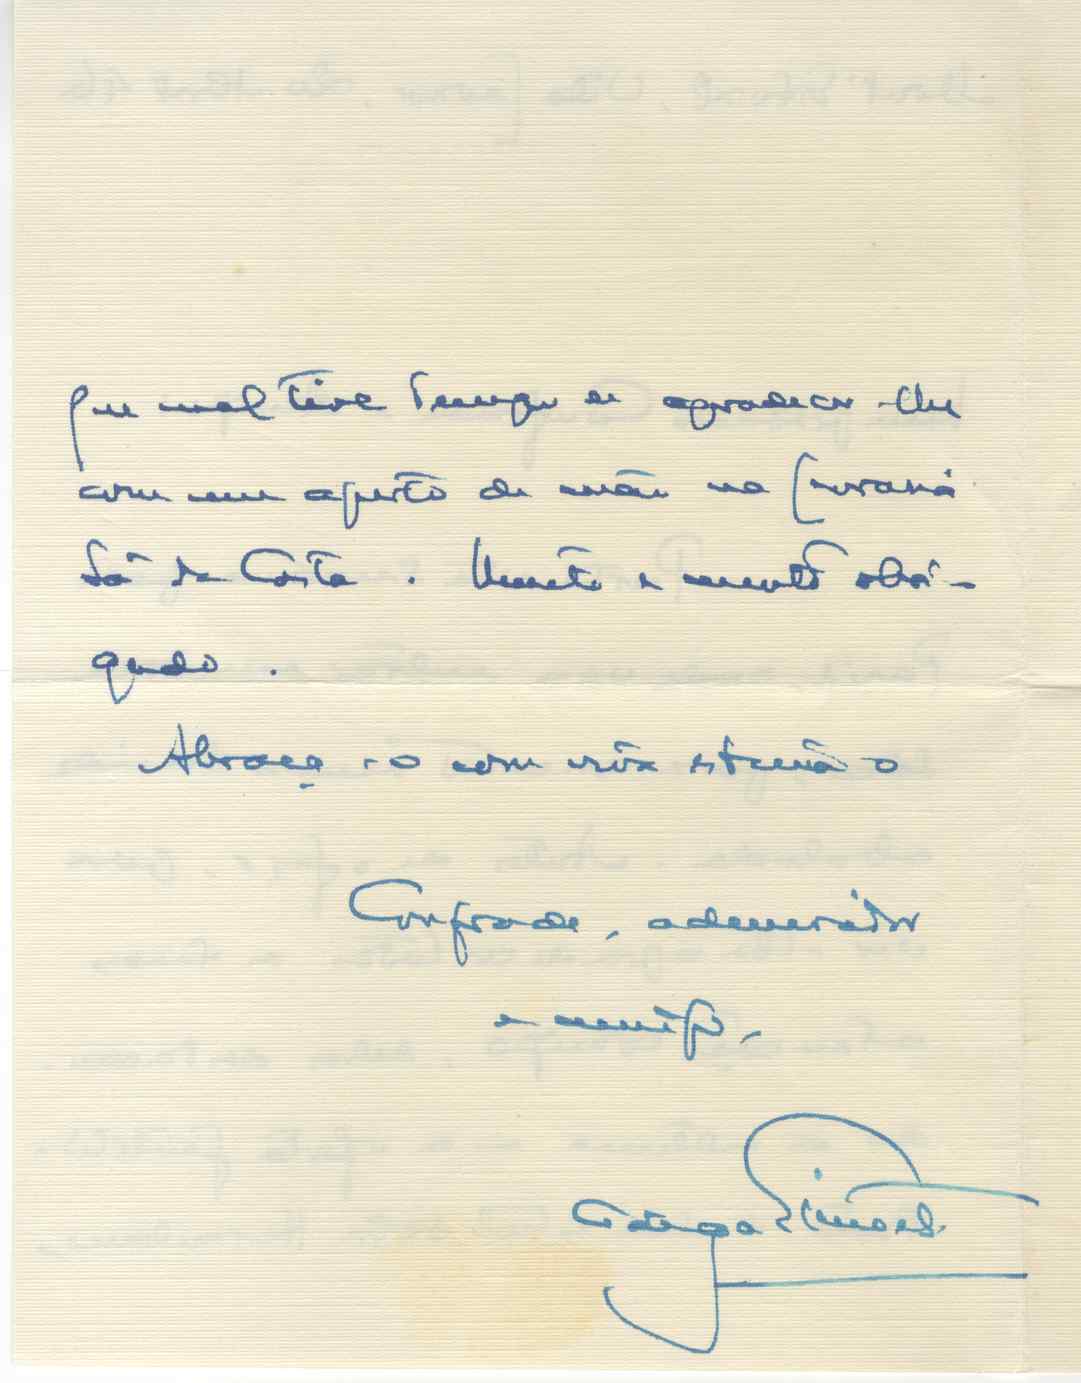 que mal tive tempo de agradecer-lhe
com um aperto de mão na Livraria
Sá da Costa. Muito e muito obri-
gado.
Abraça-o com viva estima o
Confrade, admirador
e amigo,
Gaspar Simões